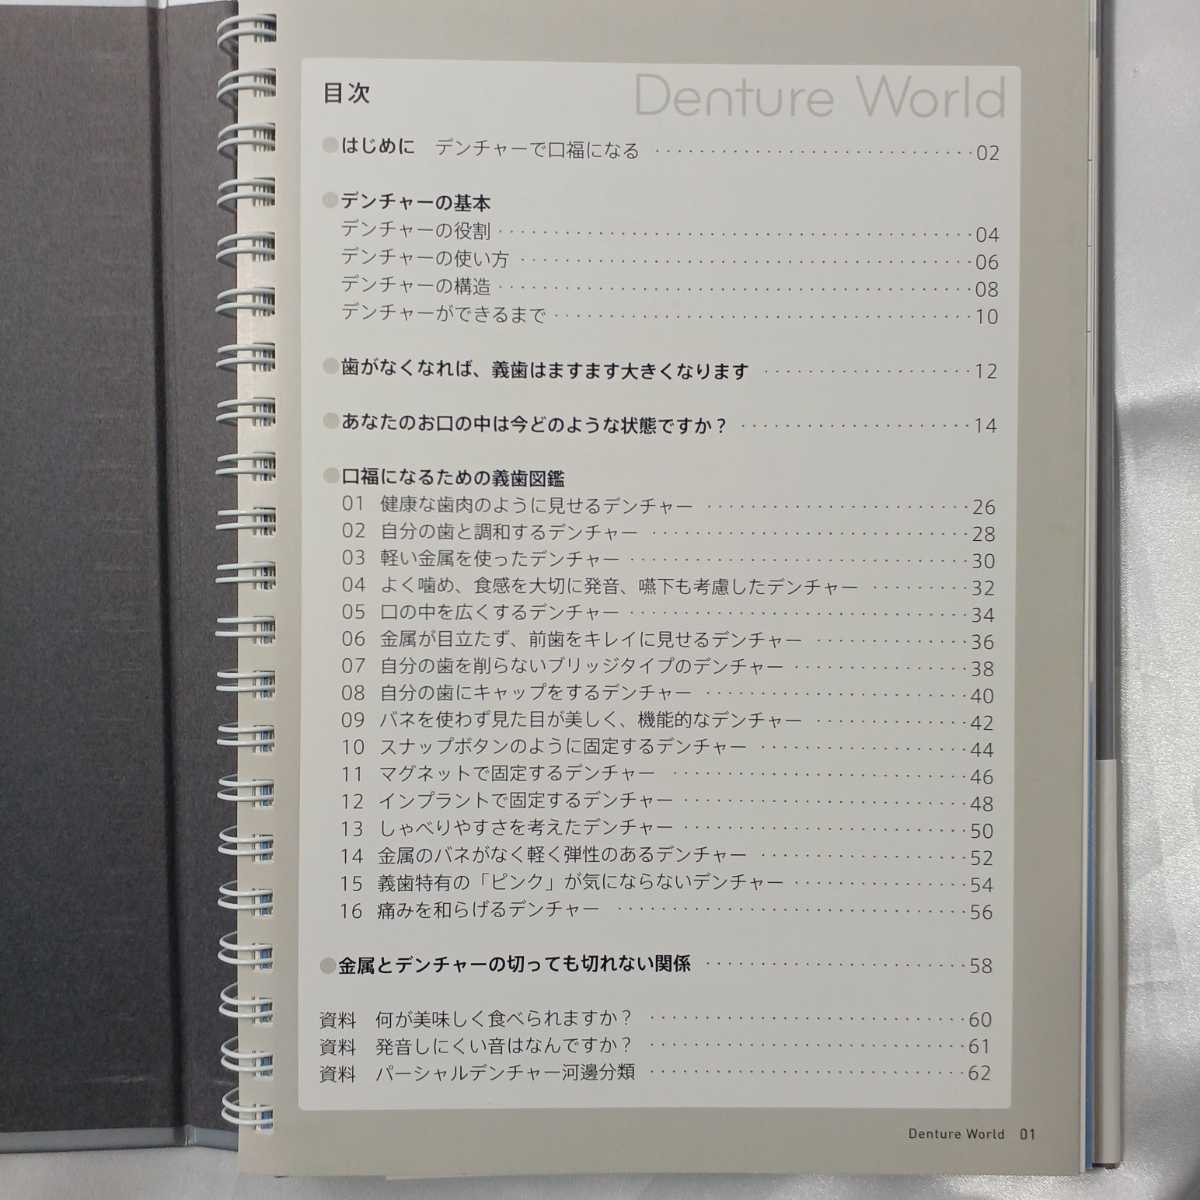 目次
Denture World
●はじめに　デンチャーで口福になる ････････････････････ 02
●デンチャーの基本
デンチャーの役割 ････････････････････ 04
デンチャーの使い方 ････････････････････ 06
デンチャーの構造 ････････････････････ 08
デンチャーができるまで ････････････････････ 10
●歯がなくなれば、義歯はますます大きくなります ････････････････････ 12
●あなたのお口の中は今どのような状態ですか？ ････････････････････ 14
●口福になるための義歯図鑑
01 健康な歯肉のように見せるデンチャー ････････････････････ 26
02 自分の歯と調和するデンチャー ････････････････････ 28
03 軽い金属を使ったデンチャー ････････････････････ 30
04 よく噛め、食感を大切に発音、嚥下も考慮したデンチャー ････････････････････ 32
05 口の中を広くするデンチャー ････････････････････ 34
06 金属が目立たず、前歯をキレイに見せるデンチャー ････････････････････ 36
07 自分の歯を削らないブリッジタイプのデンチャー ････････････････････ 38
08 自分の歯にキャップをするデンチャー ････････････････････ 40
09 バネを使わず見た目が美しく、機能的なデンチャー ････････････････････ 42
10 スナップボタンのように固定するデンチャー ････････････････････ 44
11 マグネットで固定するデンチャー ････････････････････ 46
12 インプラントで固定するデンチャー ････････････････････ 48
13 しゃべりやすさを考えたデンチャー ････････････････････ 50
14 金属のバネがなく軽く弾性のあるデンチャー ････････････････････ 52
15 義歯特有の「ピンク」が気にならないデンチャー ････････････････････ 54
16 痛みを和らげるデンチャー ････････････････････ 56
●金属とデンチャーの切っても切れない関係 ････････････････････ 58
資料　何が美味しく食べられますか？ ････････････････････ 60
資料　発音しにくい音はなんですか？ ････････････････････ 61
資料　パーシャルデンチャー河邊分類 ････････････････････ 62
Denture World 01